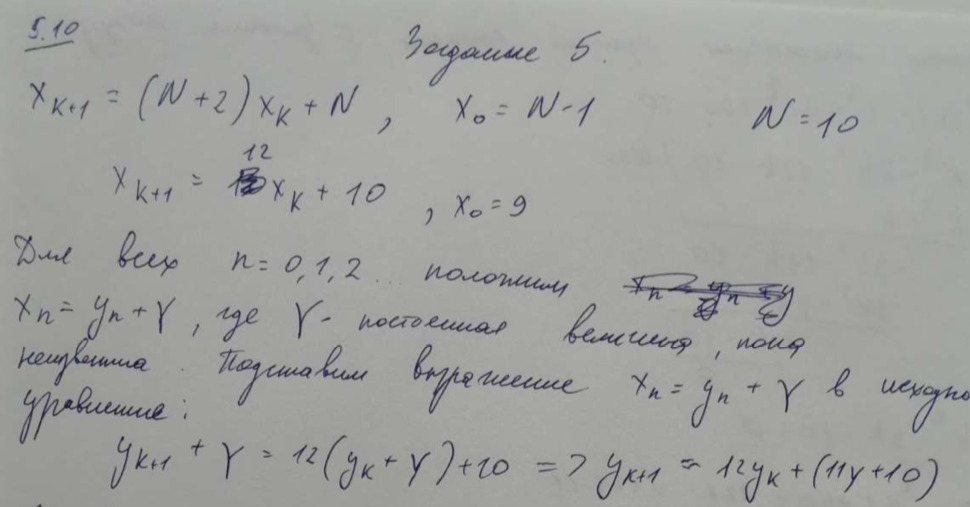 5.10
Задание 5.
x_{k+1} = (N+2) x_k + N , x_0 = N-1 N = 10
x_{k+1} = 12 x_k + 10 , x_0 = 9
Для всех n = 0,1,2... положим
x_n = y_n + γ , где γ - постоянная величина, пока
неизвестна. Подставим выражение x_n = y_n + γ в исходно
уравнение:
y_{k+1} + γ = 12(y_k + γ) + 10 => y_{k+1} = 12y_k + (11γ + 10)